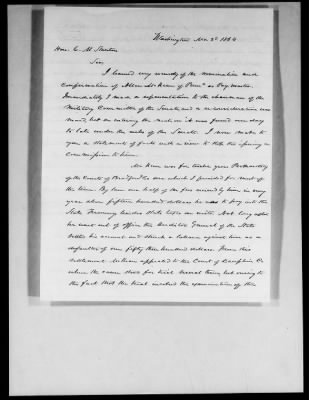 Washington Mar 3d 1864
Hon. E. M Stanton
Sir,
I learned only recently of the nomination and
confirmation of Allen McKean of Penna as Paymaster.
Immediately I made a representation to the chairman of the
Military Committee of the Senate and a reconsideration was
moved, but on entering the motion it was found one day
too late under the rules of the Senate. I now make to
you a statement of facts with a view to stop the issuing a
Commission to him.
Mr Kean was for twelve years Prothonotary
of the County of Bradford in one which I presided for most of
the time. By law one half of the fees received by him in any
year above fifteen hundred dollars he was to pay into the
State Treasury under State laws on oath. Not long after
he went out of office the Auditor General of the State
settled his account and struck a balance against him as a
defaulter of over fifty three hundred dollars. From this
settlement McKean appealed to the Court of Dauphin Co
where the cause stood for trial several terms, but owing to
the fact that the trial involved the examination of the